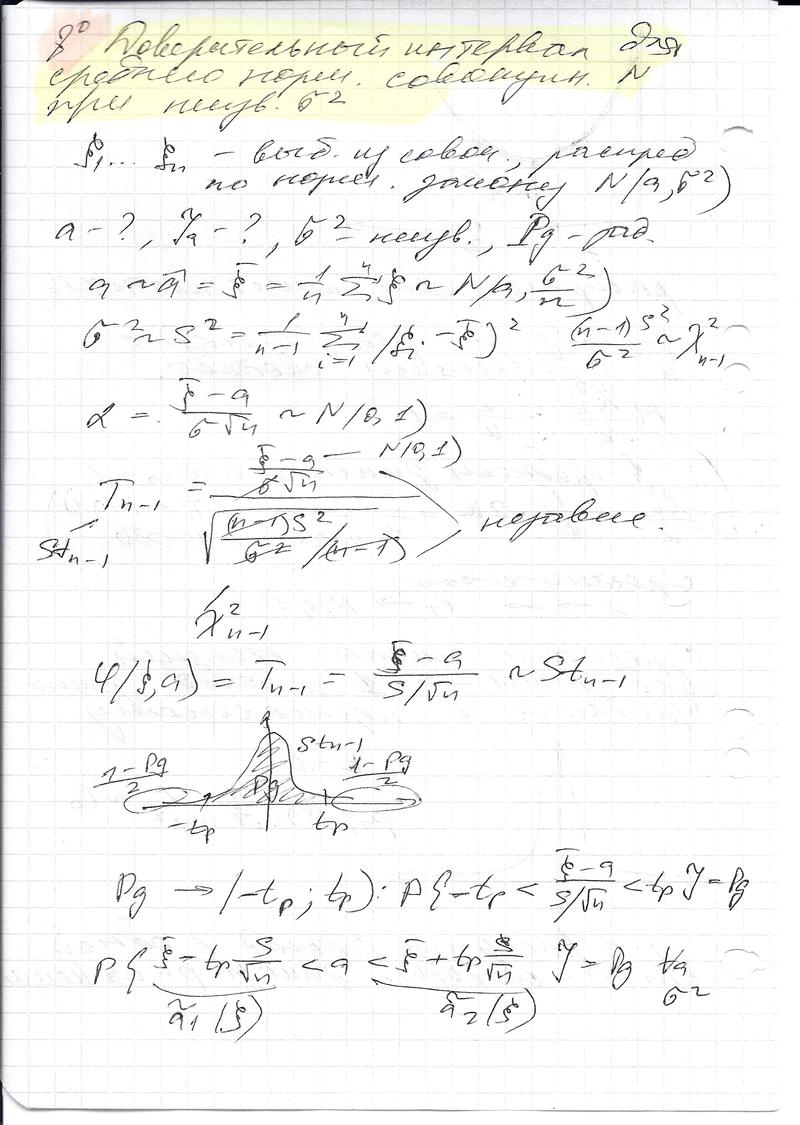 8° Доверительный интервал для
среднего норм. совокупн. N
при неизв. σ²
ξ₁... ξₙ – выб. из совок., распред
по норм. закону N(a, σ²)
a – ?, γₐ – ?, σ² – неизв., Pg – зад.
a ~ ã = ξ̄ = 1/n Σⁿ ξ ~ N(a, σ²/n)
σ² ~ S² = 1/(n-1) Σⁿᵢ₌₁ (ξᵢ - ξ̄)² (n-1)S²/σ² ~ χ²ₙ₋₁
α = (ξ̄ - a)/(σ√n) ~ N(0,1)
Tₙ₋₁ = ((ξ̄ - a)/(σ√n)) / √((n-1)S²/σ² /(n-1)) — N(0,1)
Stₙ₋₁ независ.
χ²ₙ₋₁
φ(ξ,a) = Tₙ₋₁ = (ξ̄ - a)/(S/√n) ~ Stₙ₋₁
Stₙ₋₁
(1-Pg)/2 Pg (1-Pg)/2
-tp tp
Pg → (-tp; tp): P{-tp < (ξ̄ - a)/(S/√n) < tp} = Pg
P{ξ̄ - tp S/√n < a < ξ̄ + tp S/√n} = Pg ∀a
σ²
ã₁(ξ) ã₂(ξ)